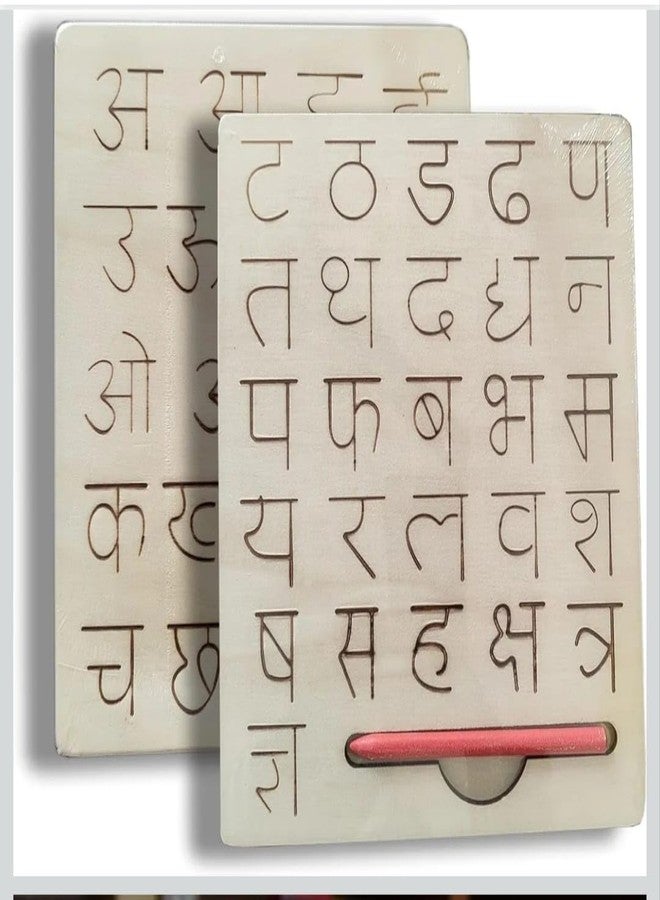 अ आ
उ ऊ
ओ
क ख
च छ
ट ठ ड ढ ण
त थ द ध न
प फ ब भ म
य र ल व श
ष स ह क्ष त्र
ज्ञ